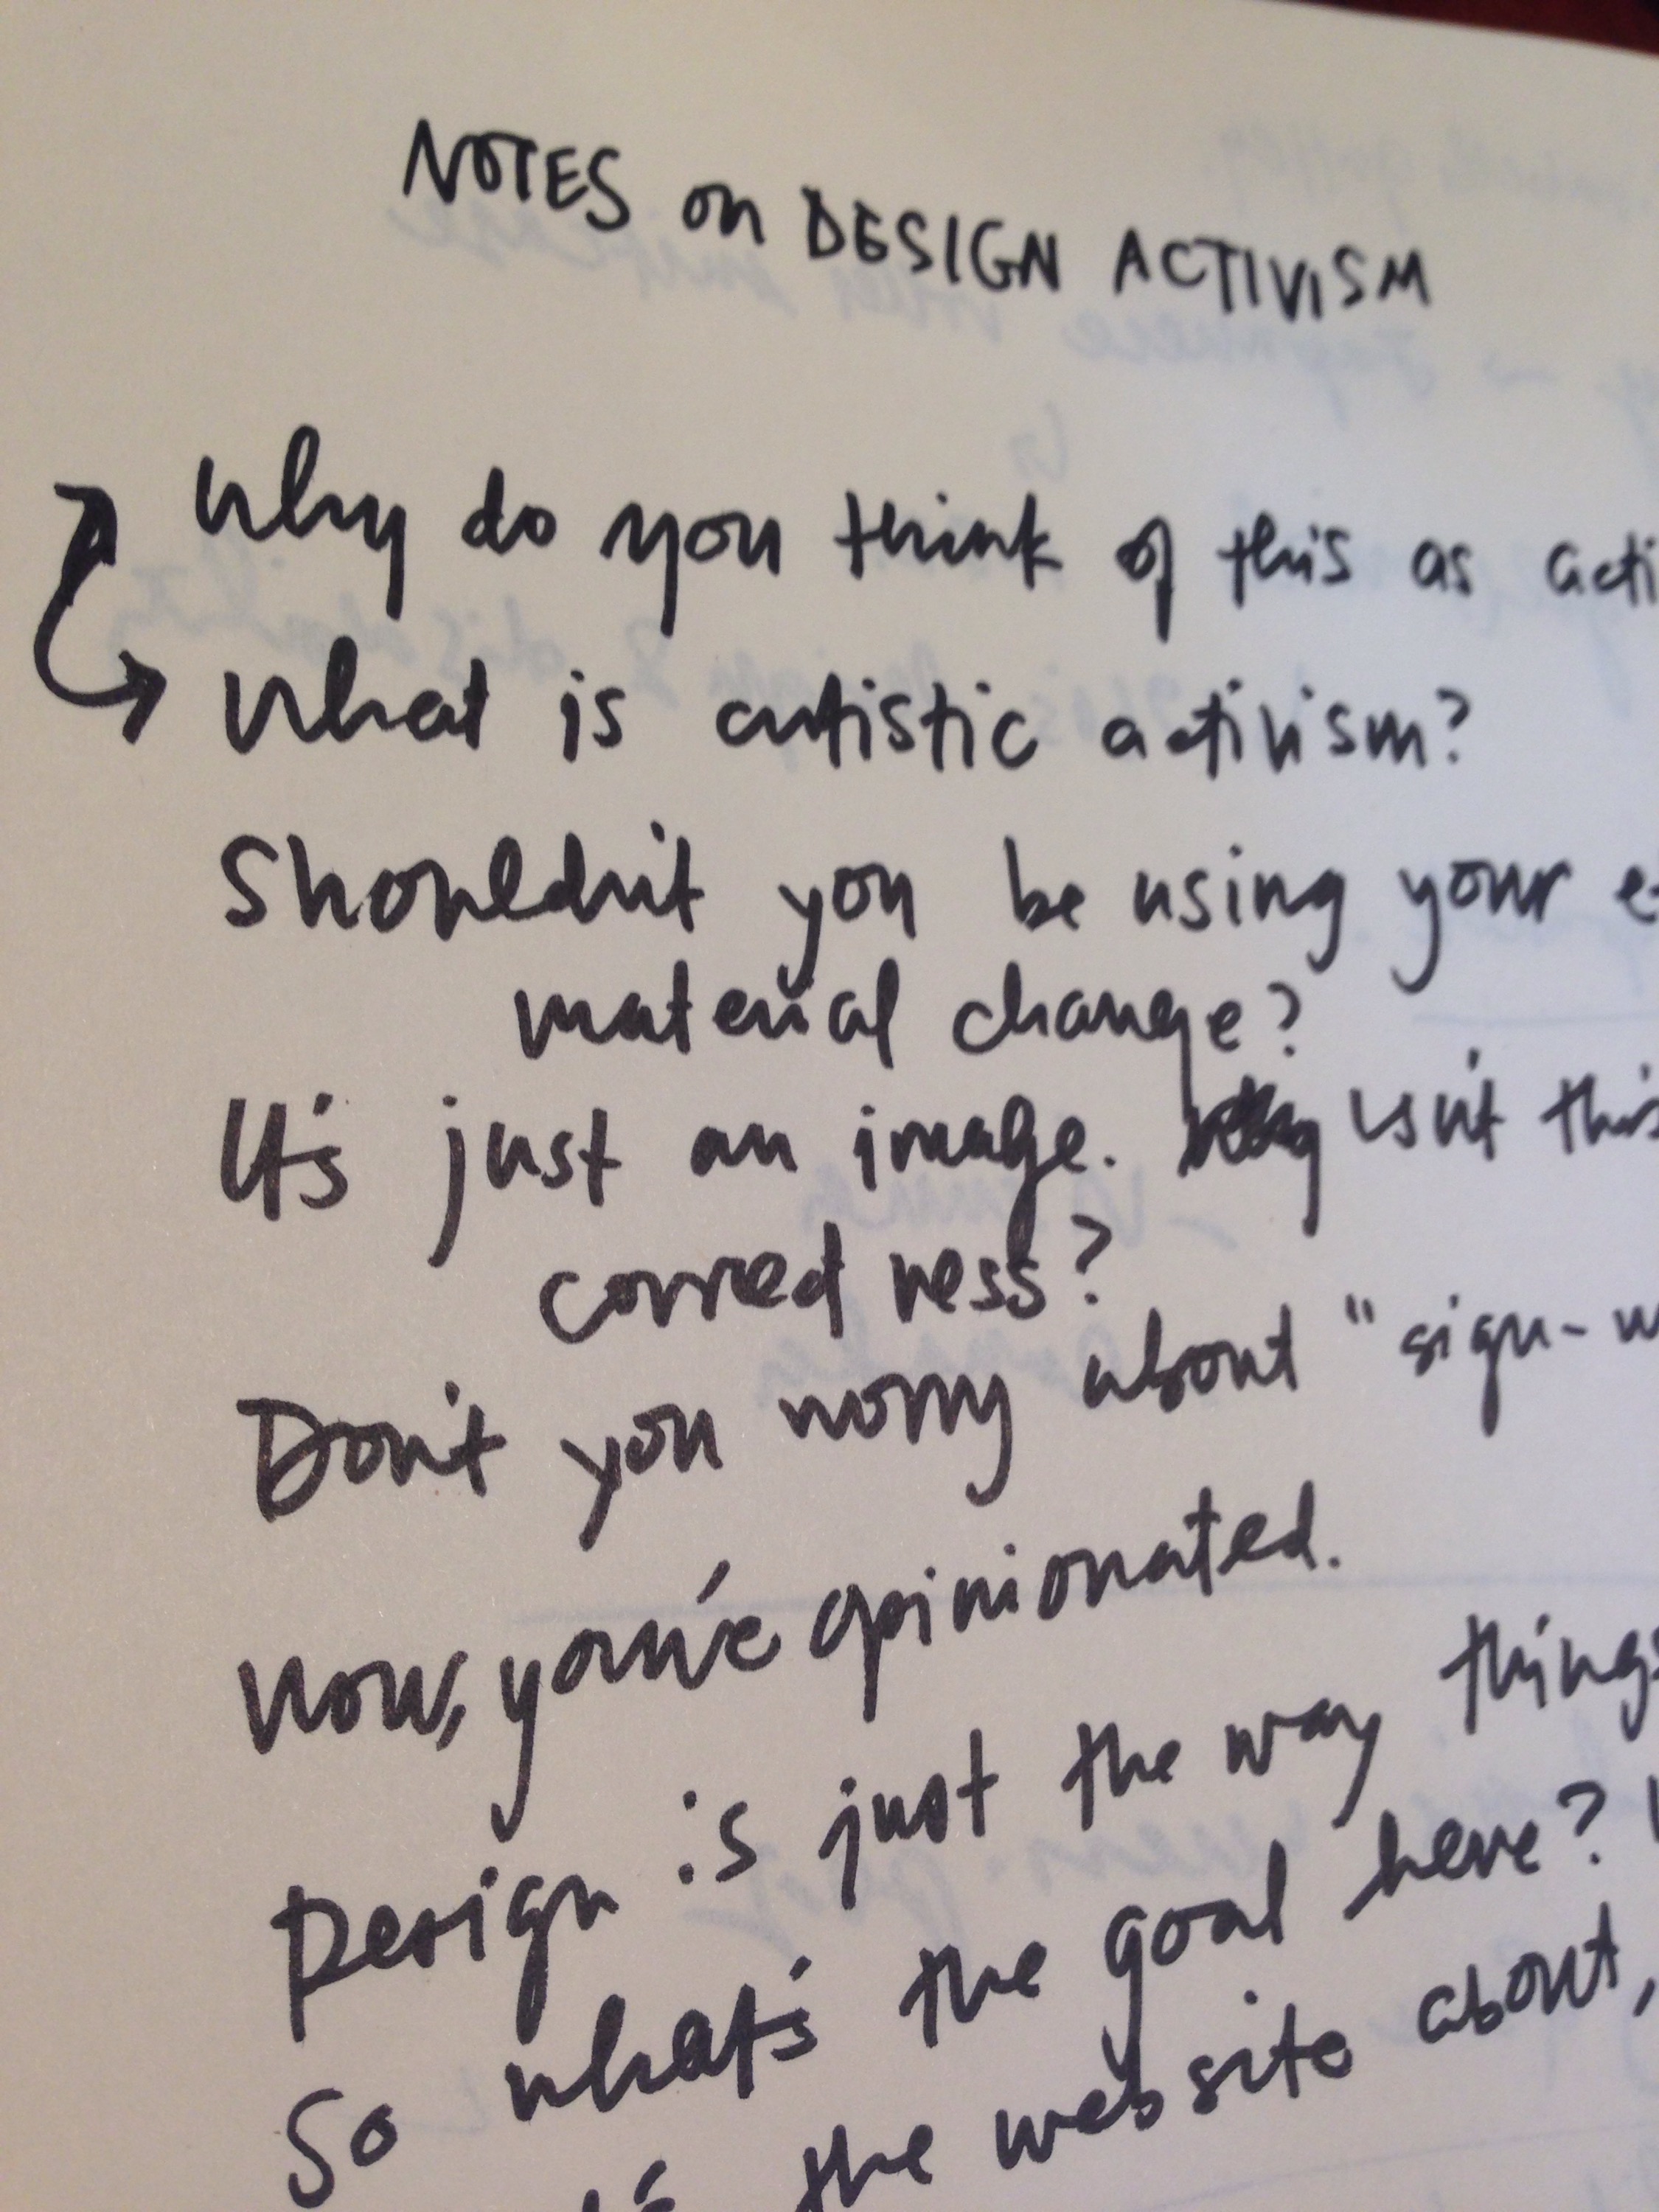 NOTES on DESIGN ACTIVISM
Why do you think of this as acti
What is autistic activism?
Shouldn't you be using your e
material change?
It's just an image. isn't this
correctness?
Don't you worry about "sign-w
Wow, you're opinionated.
Design is just the way things
So what's the goal here?
the website about,